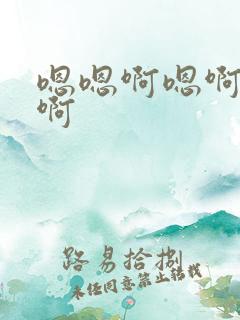 嗯嗯啊嗯啊
啊
路易拾捌
未经同意禁止转载